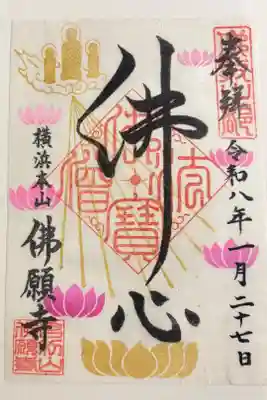 奉拝
令和八年一月二十七日
佛心
横浜本山
佛願寺
佛法僧寳